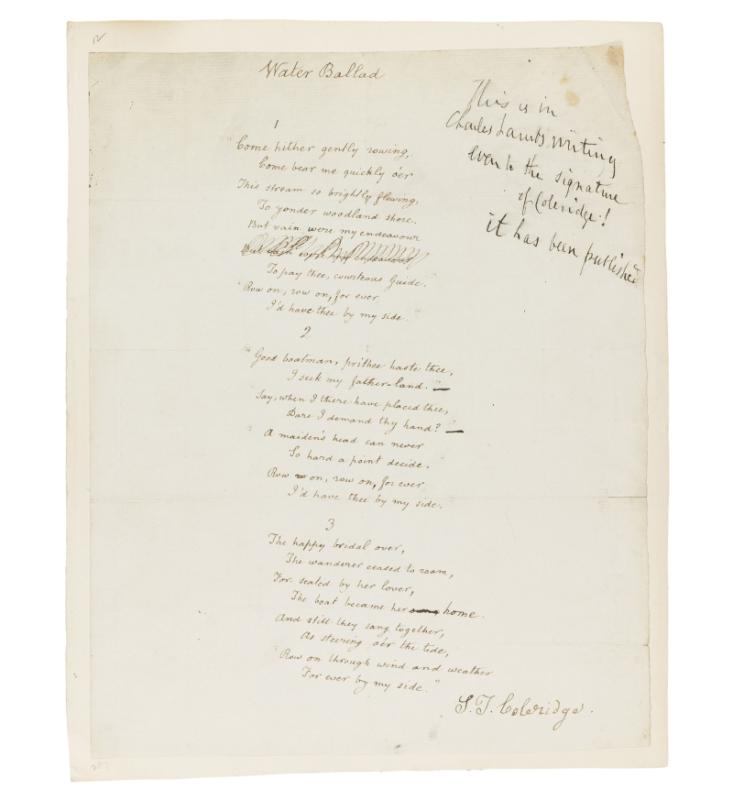 Water Ballad
This is in
Charles Lamb's writing
even to the signature
of Coleridge!
it has been published
1
"Come hither gently rowing,
Come bear me quickly o'er
This stream so brightly flowing,
To yonder woodland shore.
But vain were my endeavour
To pay thee, courteous Guide.
Row on, row on, for ever
I'd have thee by my side.
2
"Good boatman, prithee haste thee,
I seek my father-land."—
Say, when I there have placed thee,
Dare I demand thy hand?"—
A maiden's head can never
So hard a point decide.
Row on, row on, for ever
I'd have thee by my side.
3
The happy bridal over,
The wanderer ceased to roam,
For seated by her lover,
The boat became her home.
And still they sang together,
As steering o'er the tide,
"Row on through wind and weather
For ever by my side."
S. T. Coleridge.